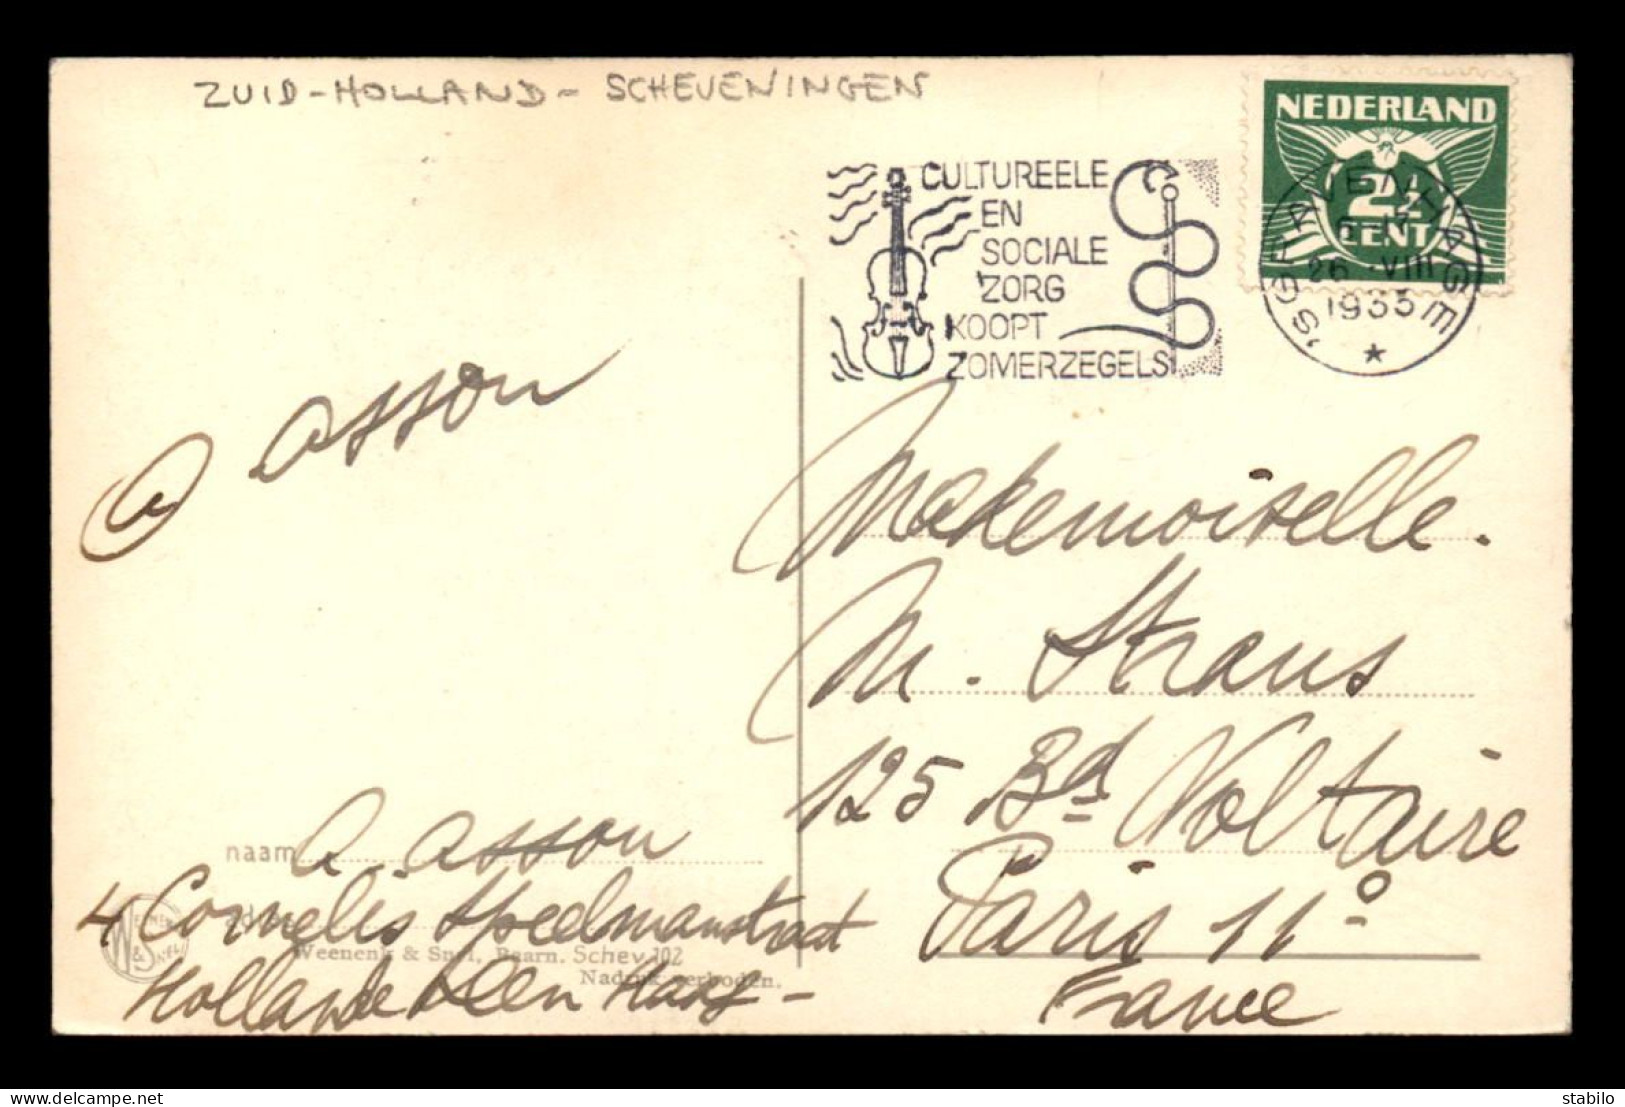 ZUID-HOLLAND - SCHEVENINGEN
NEDERLAND
2½
CENT
'S GRAVENHAGE
26.VIII
1935
CULTUREELE
EN
SOCIALE
ZORG
KOOPT
ZOMERZEGELS
a asson
Mademoiselle.
M. Straus
125 Bd Voltaire
Paris 11º
France
naam a. asson
4 Cornelis Speelmanstraat
Weenenk & Snel, Baarn. Schev 102
Nadruk verboden.
Hollande Den Haag -
W & S
www.delcampe.net
stabilo